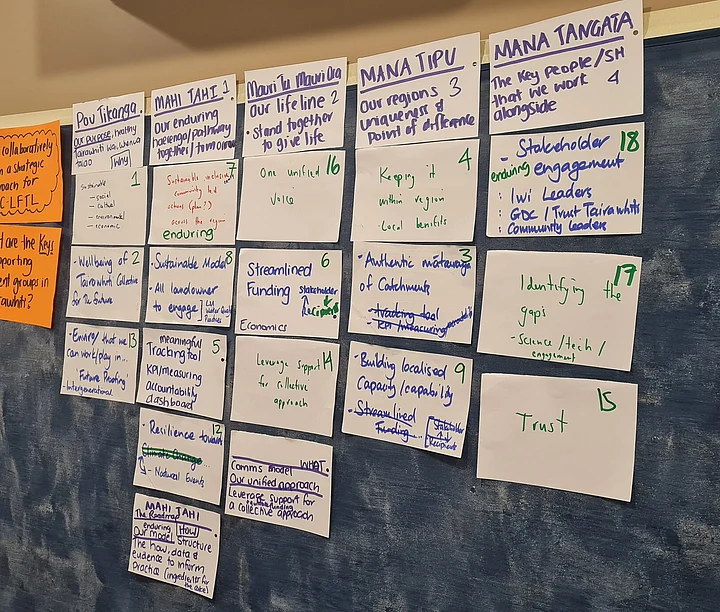 collaboratively
on a strategic
for
C-LFTL
are the Keys
pporting
ent groups in
rawhiti?
Pou Tikanga
our purpose, healthy
Tairawhiti
[Why]
1
Sustainable
- social
- cultural
- environmental
- economic
2
- Wellbeing of
Tairawhiti Collective
for the future
13
- Ensure that we
can work/play in...
'Future Proofing'
- Intergenerational
MAHI TAHI 1
Our enduring
/pathway
together/
7
Sustainable
community led
across the region
enduring
8
- Sustainable Model
- All landowner
to engage
5
meaningful
Tracking tool
KPI/measuring
accountability
dashboard
12
- Resilience towards
Climate Change...
- Natural Events
MAHI TAHI
The Roadmap
enduring
Our model [How]
Structure
The how, data &
evidence to inform
practice (ingredients for
the cake)
Mauri Tu Mauri Ora
Our life line 2
• stand together
to give life
16
One unified
voice
6
Streamlined
Funding
stakeholder
Recipients
Economics
14
Leverage support
for collective
approach
Comms model WHAT.
Our unified approach
Leverage support for
funding
a collective approach
MANA TIPU
Our regions 3
uniqueness &
Point of difference
4
Keeping it
within region
- Local benefits
3
• Authentic
of Catchments
- tracking tool
- KPI/measuring
9
- Building localised
Capacity/capability
- Streamlined
Funding...
Stakeholder
Recipients
MANA TANGATA
The Key people/SH
that we work 4
alongside
18
- Stakeholder
enduring engagement
: Iwi Leaders
: GDC / Trust Tairawhiti
: Community Leaders
17
Identifying the
gaps
- Science/tech/
engagement
15
Trust